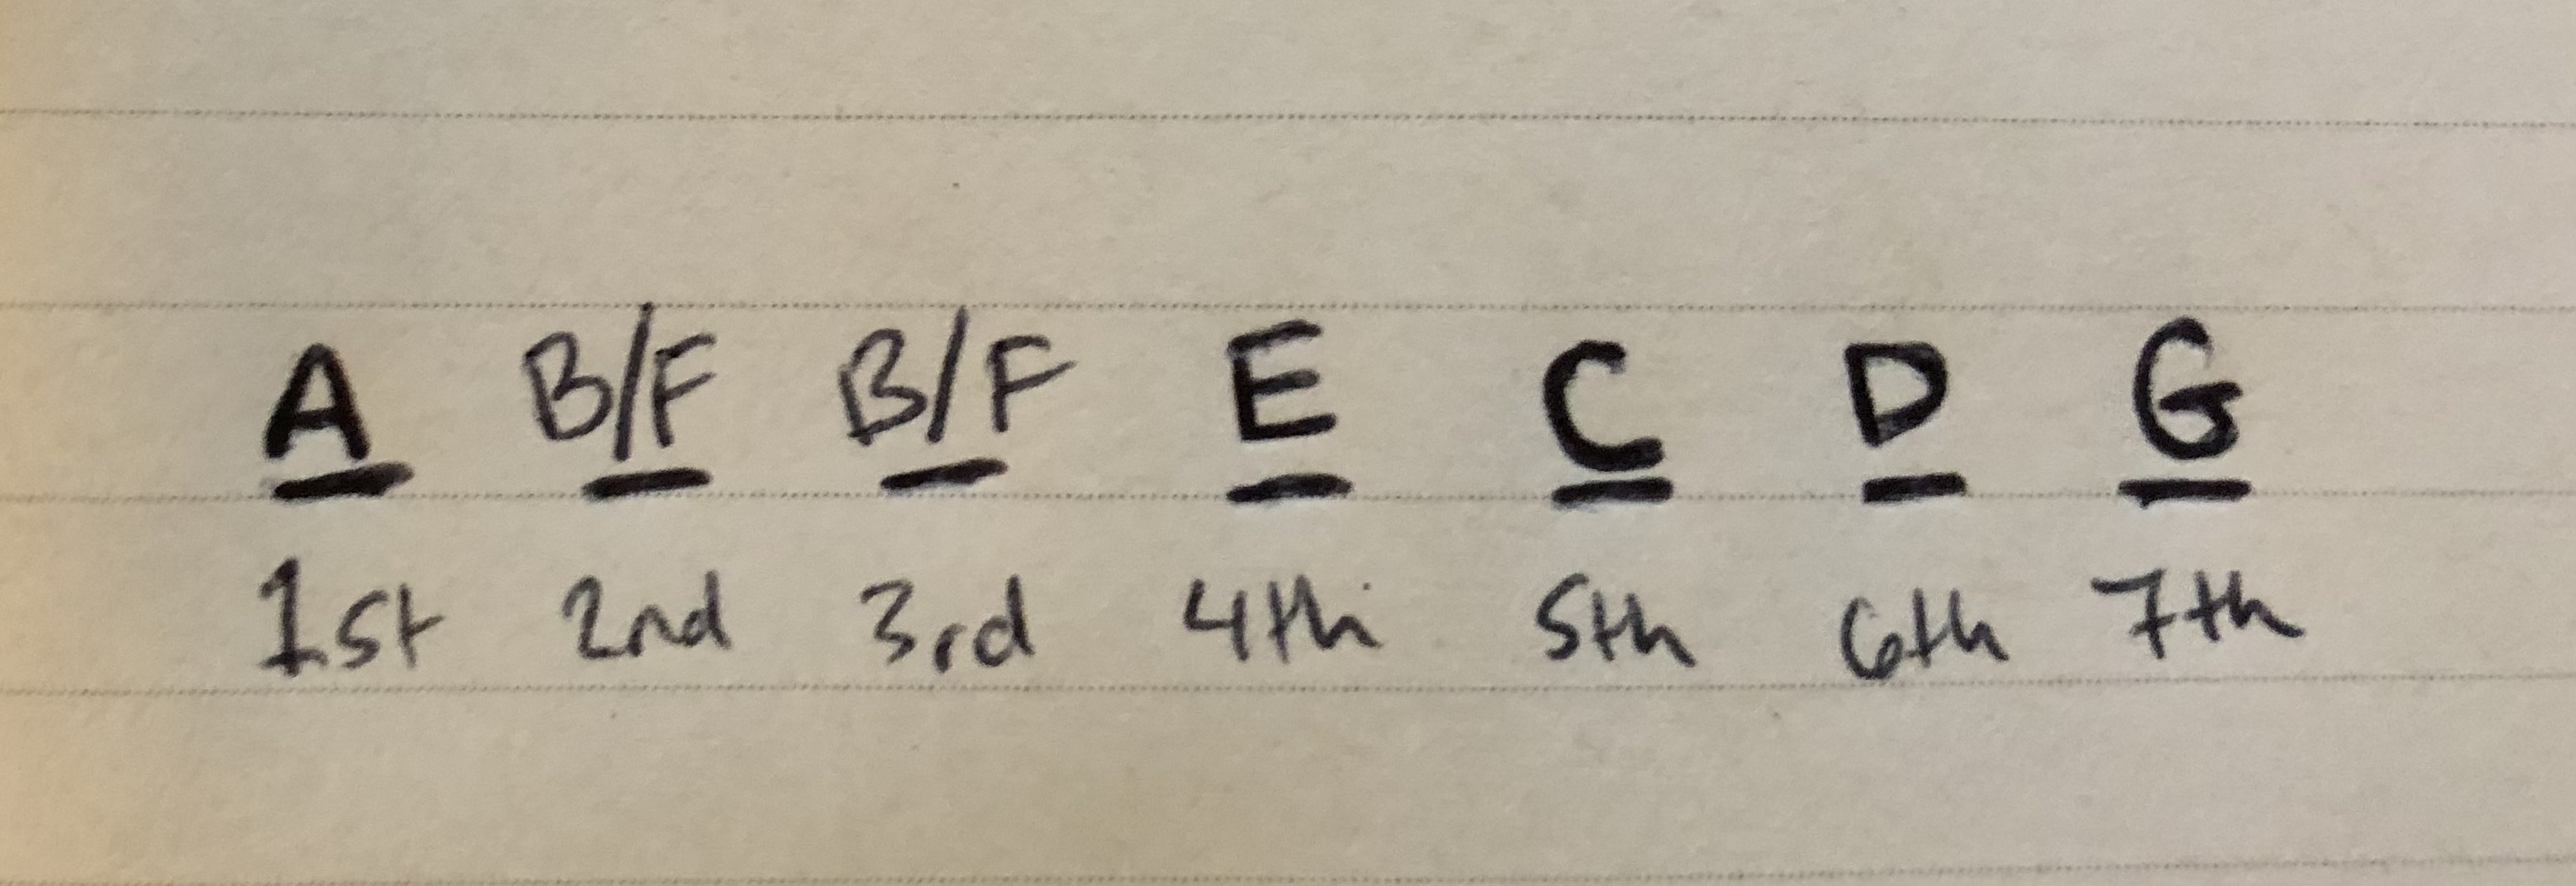 A B/F B/F E C D G
1st 2nd 3rd 4th 5th 6th 7th